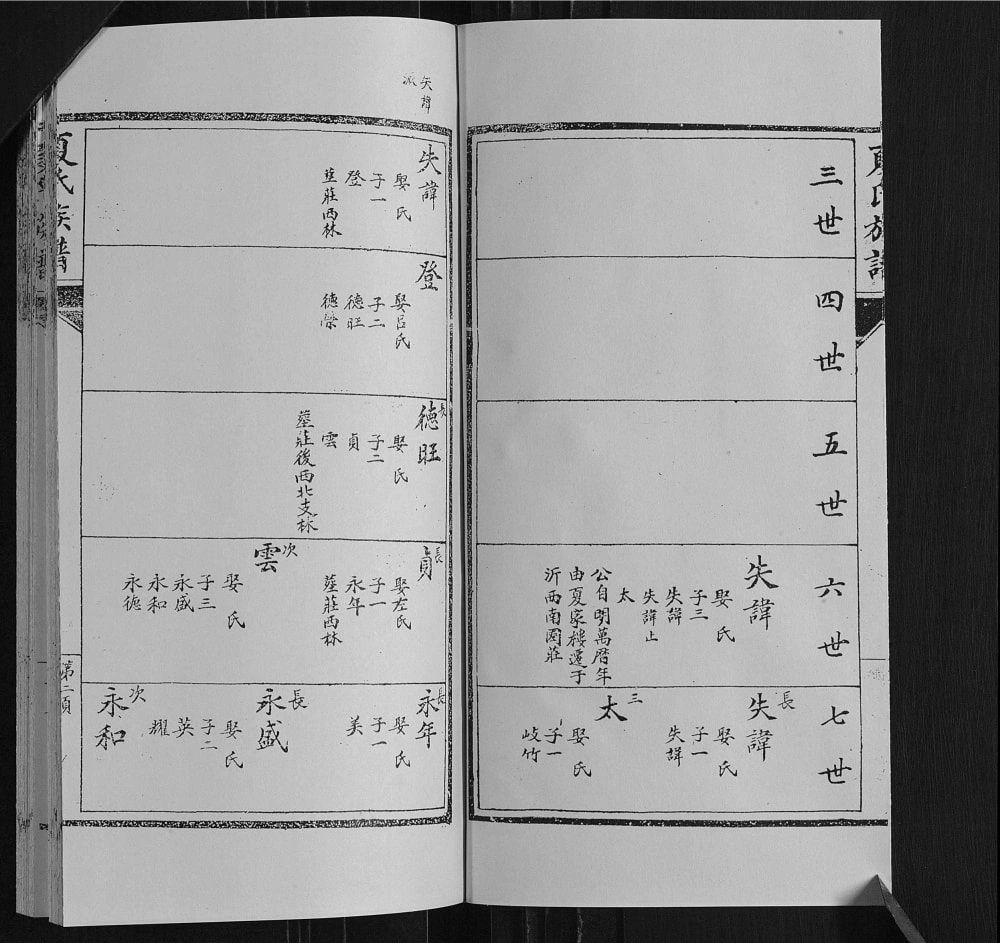 夏氏族譜
三世
四世
五世
六世
失諱
娶 氏
子三
失諱
失諱止
太
公自明萬曆年
由夏家樓遷于
沂西南園莊
七世
長
失諱
娶 氏
子一
失諱
三
太
娶 氏
子一
岐竹
失諱
派
失諱
娶 氏
子一
登
塟莊西林
登
娶呂氏
子二
德旺
德榮
長
德旺
娶 氏
子二
貞
雲
塟莊後西北支林
長
貞
娶左氏
子一
永年
塟莊西林
次
雲
娶 氏
子三
永盛
永和
永德
長
永年
娶 氏
子一
美
長
永盛
娶 氏
子二
英
耀
次
永和
夏氏族譜
第二頁